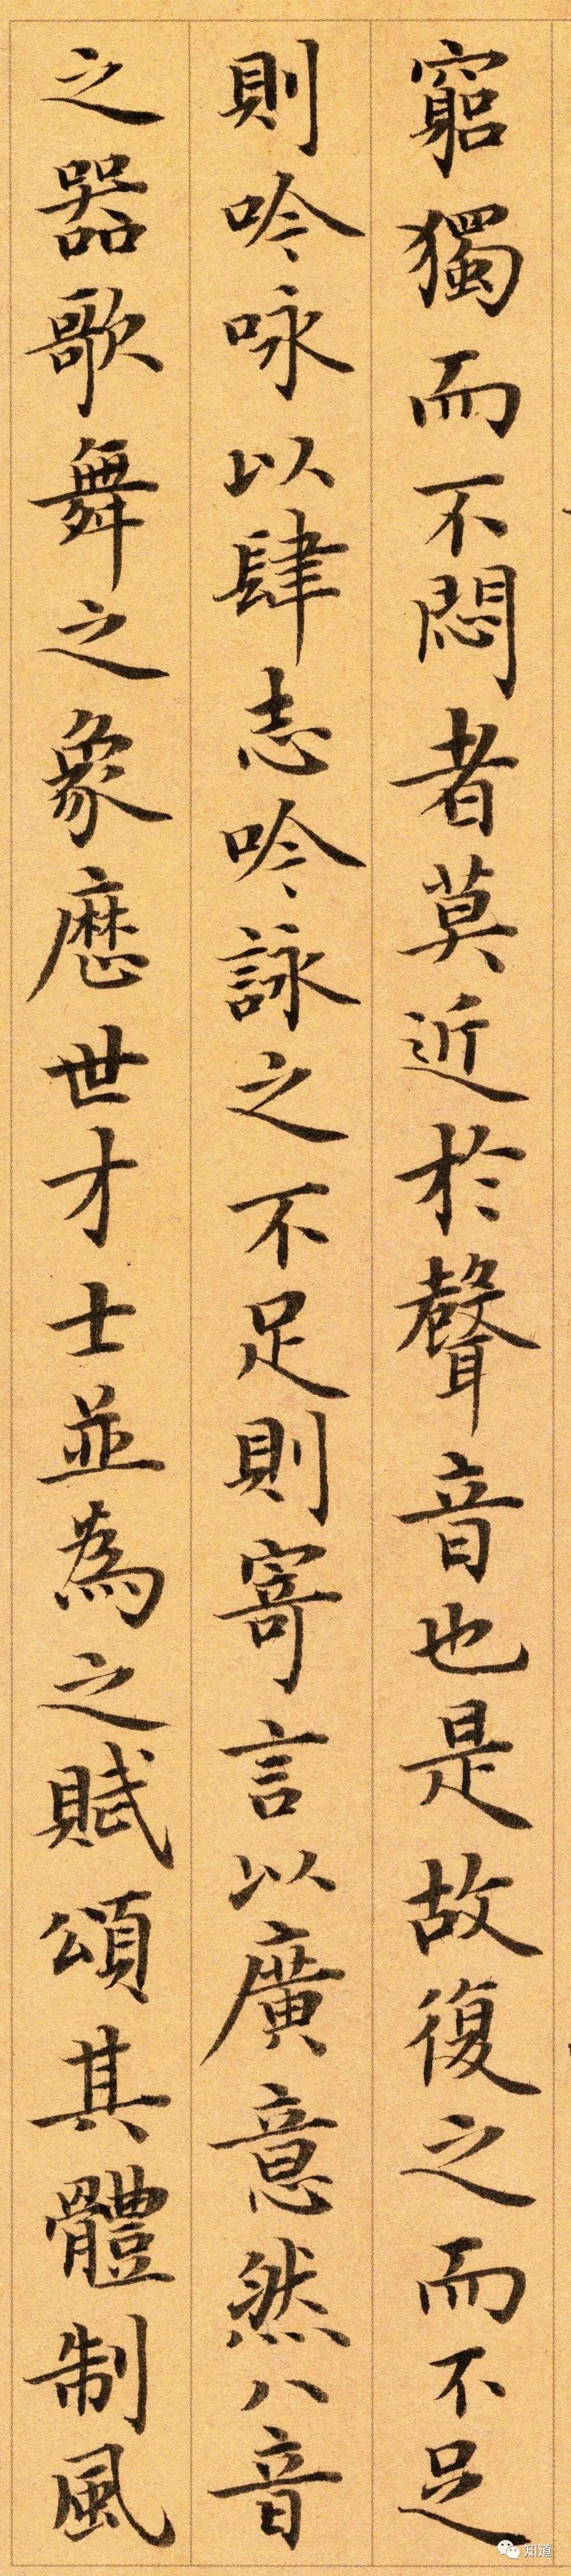 窮獨而不悶者莫近於聲音也是故復之而不足
則吟咏以肆志吟詠之不足則寄言以廣意然八音
之器歌舞之象歷世才士並為之賦頌其體制風
知道